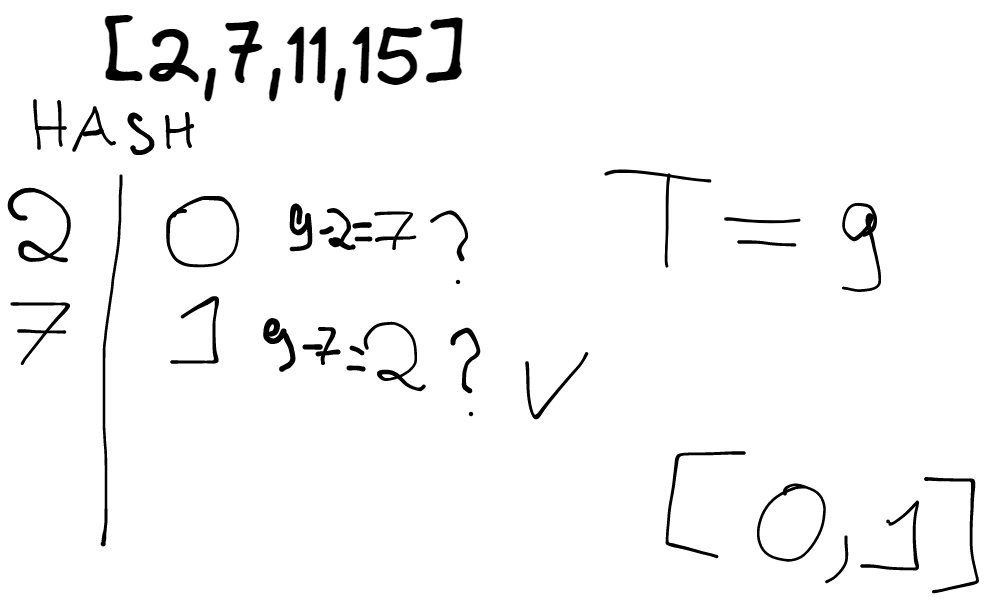 [2,7,11,15]
HASH
2 0 9-2=7 ?
T = 9
7 1 9-7=2 ? V
[0,1]